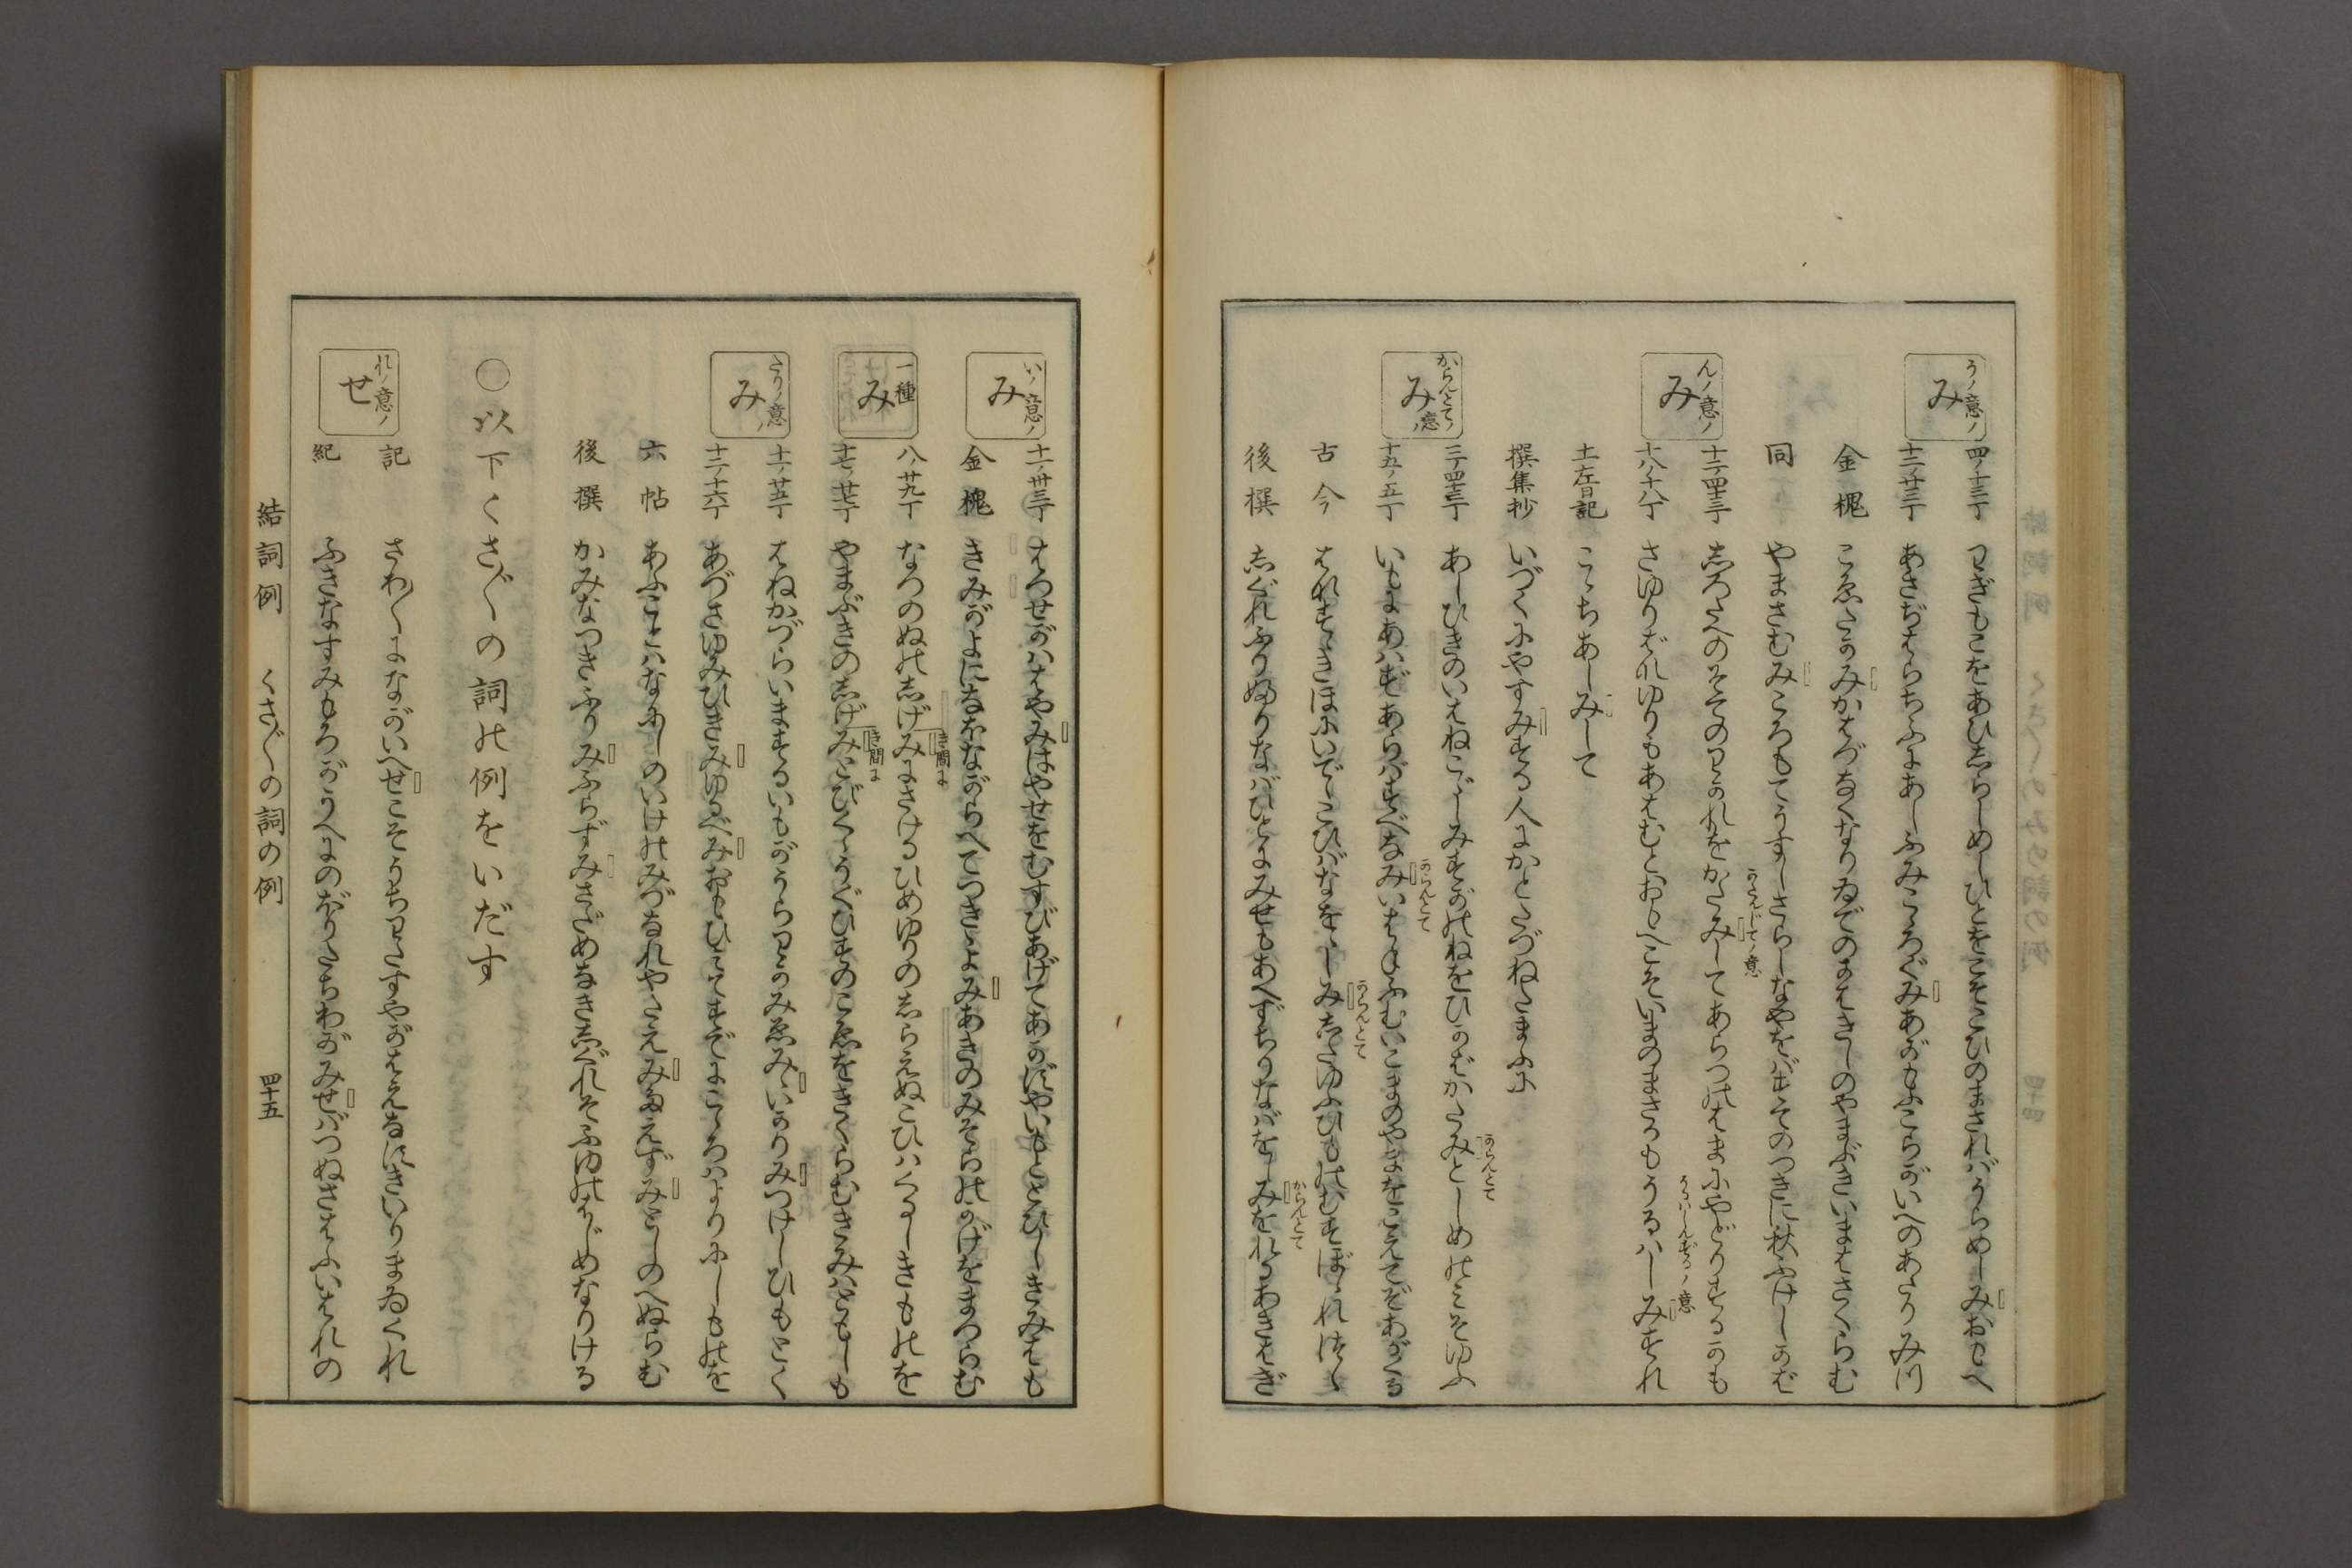 うノ意ノ み
四ノ十三丁 わぎもこをあひしらしめしひとをこそこひのまされバうらめしみおもへ
十二ノ廿三丁 あさぢはらちふにあしふみこゝろぐみあがもふこらがいへのあたりみつ
金槐 こゑたかみかはづなくなりゐでのかはきしのやまぶきいまはさくらむ
同 やまさむみころもてうすしさらしなやをバすてのつきに秋ふけしかば
んノ意ノ み
十二ノ四十三丁 しろたへのそでのわかれをかたみしてあらつのはまにやどりするかも
かたんじてノ意
十八ノ十八丁 さゆりばなゆりもあはむとおもへこそいまのまさかもうるハしみすれ
うるハしんずるノ意
土左日記 こゝちあしみして
撰集抄 いづくにやすみする人にかとたづねたまふに
からんとてノ意ノ み
三ノ四十三丁 あしひきのいはねこゞしみすがのねをひかばかたみとしめのミそゆふ
からんとて
十五ノ五丁 いもにあハずあらばすべなみいはねふむいこまのやまをこえてぞあがくる
からんとて
古今 はなすゝきほにいでゝこひバなををしみしたゆふひものむすぼゝれつゝ
からんとて
後撰 しぐれふりふりなバひとにみせもあへずちりなバをしみをれるあきはぎ
からんとて
いノ意ノ み
十一ノ卅三丁 はつせがハはやみはやせをむすびあげてあかずやいもととひしきみはも
金槐 きみがよになをながらへてつききよみあきのみそらのかげをまつらむ
一種 み
八ノ廿九丁 なつのぬのしげみにさけるひめゆりのしらえぬこひハくるしきものを
き間に
十七ノ廿七丁 やまぶきのしげみとびくゝうぐひすのこゑをきくらむきみハともしも
き間に
たりノ意ノ み
十一ノ廿五丁 はねかづらいまするいもがうらわかみゑみゝいかりみつけしひもとく
十二ノ十六丁 あづさゆみひきみゆるべみおもひみてすでにこゝろハよりにしものを
六帖 あふことハなにしのいけのみづなれやたえみたえずみとしのへぬらむ
後撰 かみなつきふりみふらずみさだめなきしぐれそふゆのはじめなりける
○以下くさ〴〵の詞の例をいだす
れノ意ノ せ
記 さわ〳〵にながいへせこそうちわたすやがはえなすきいりまゐくれ
紀 ふさなすみもろがうへにのぼりたちわがみせバつぬさはふいはれの
結詞例 くさ〴〵の詞の例 四十五